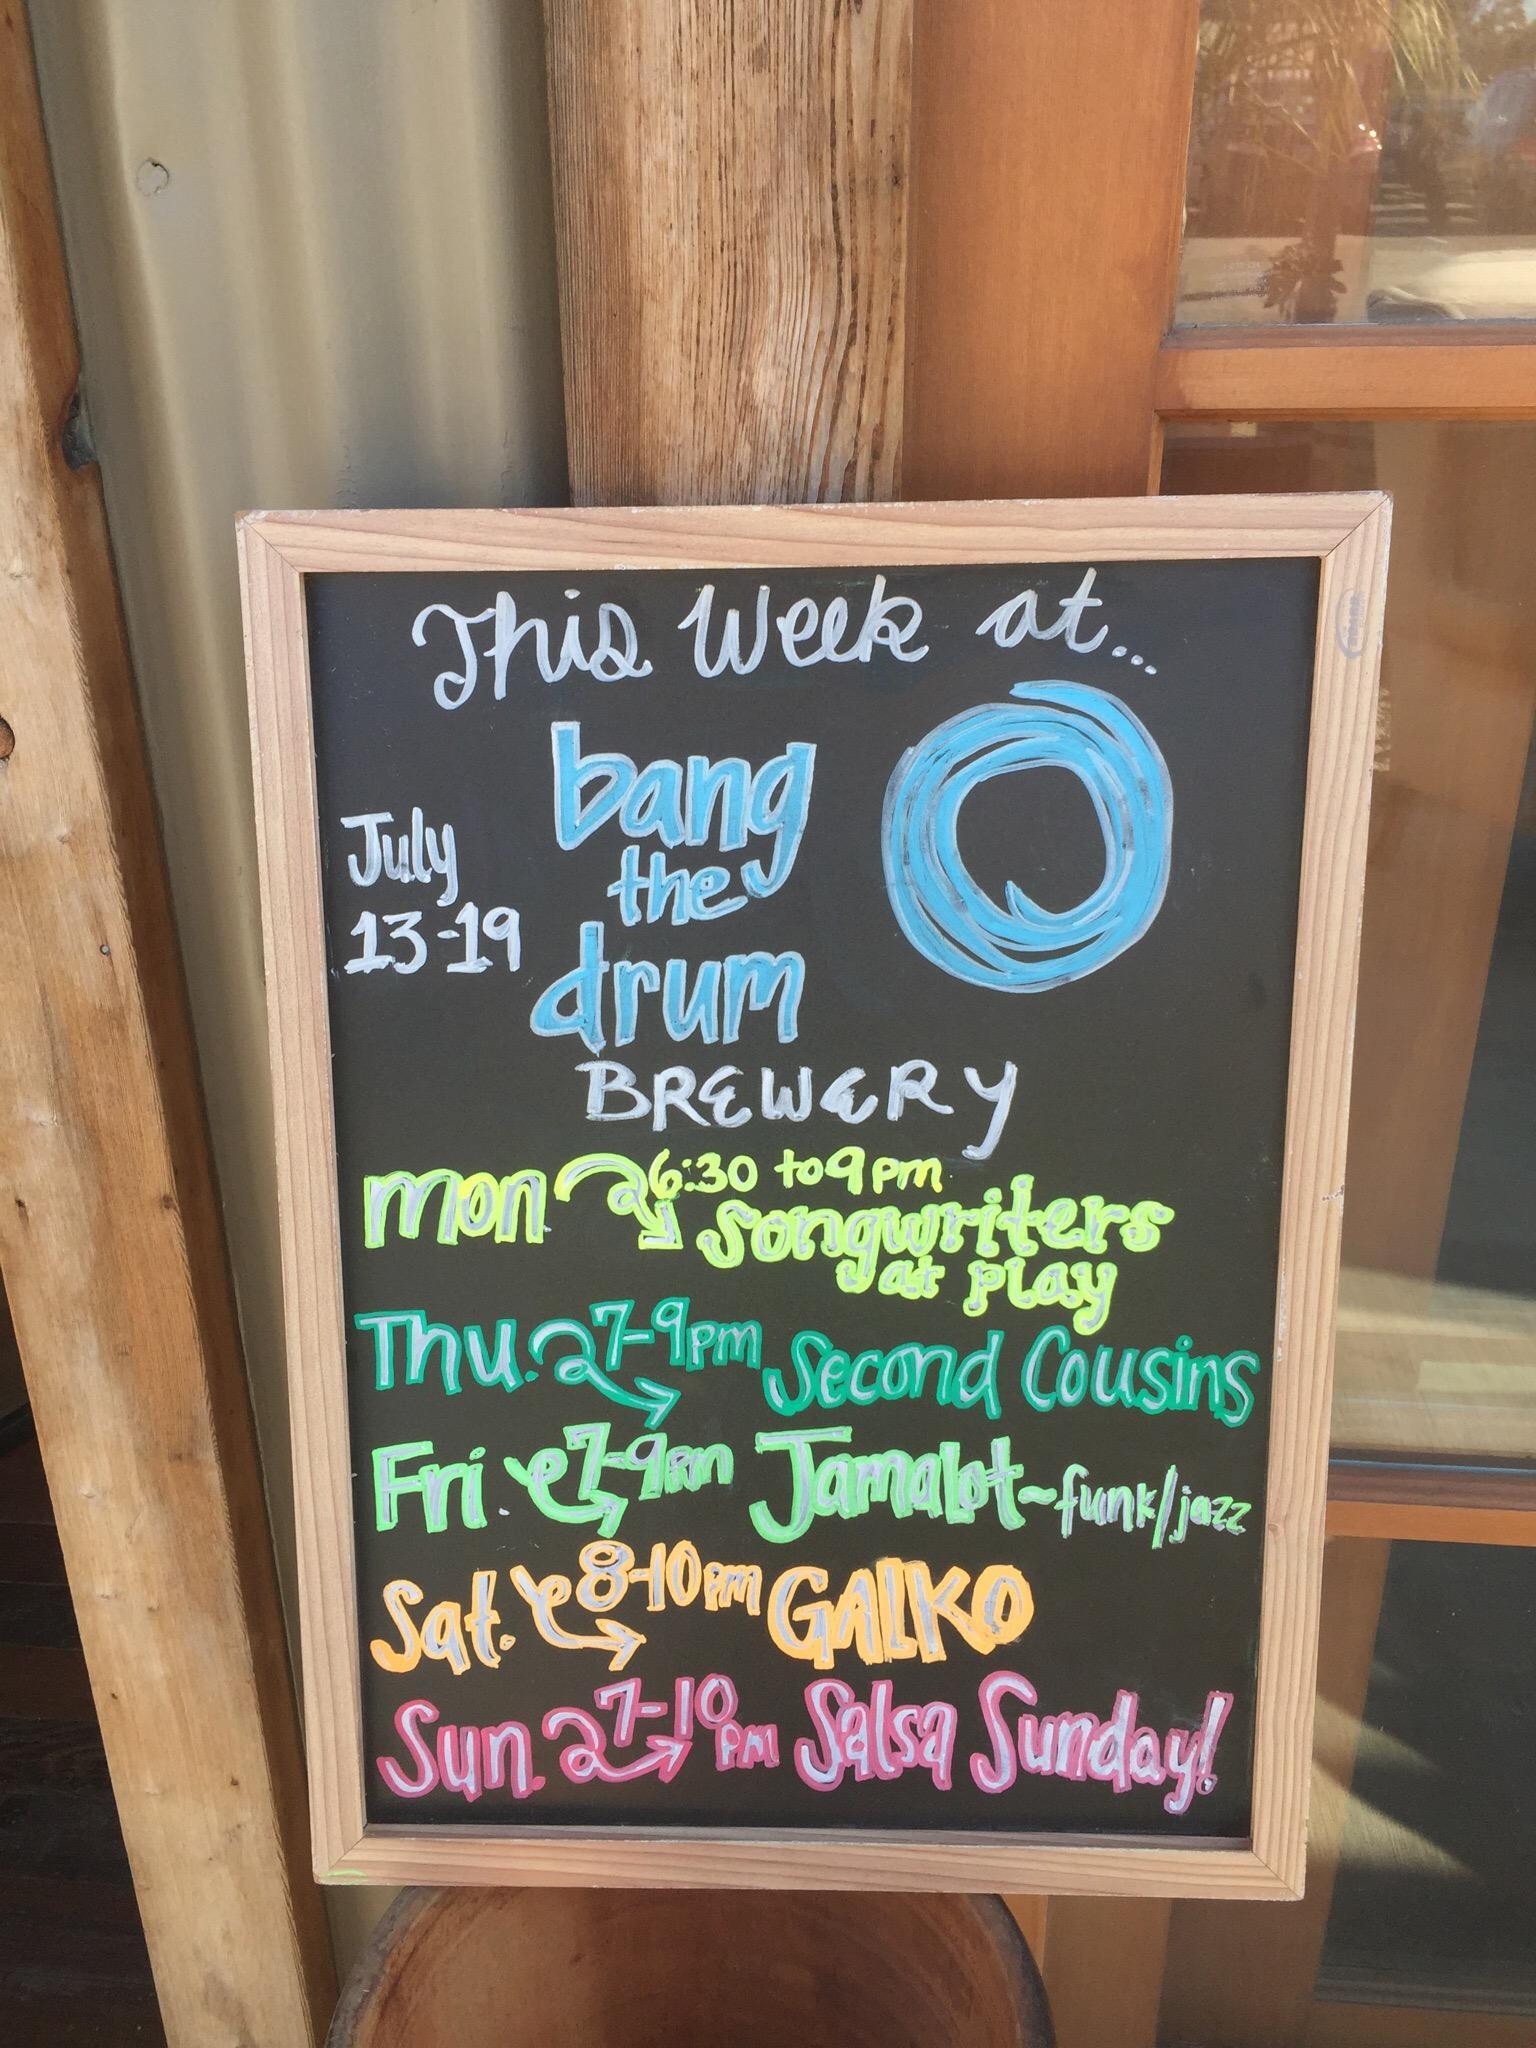 This Week at...
bang
the
drum
July
13-19
BREWERY
Mon 6:30 to 9pm
Songwriters
at play
Thu. 7-9pm Second Cousins
Fri. 7-9pm Jamalot~funk/jazz
Sat. 8-10pm GALKO
Sun. 7-10pm Salsa Sunday!